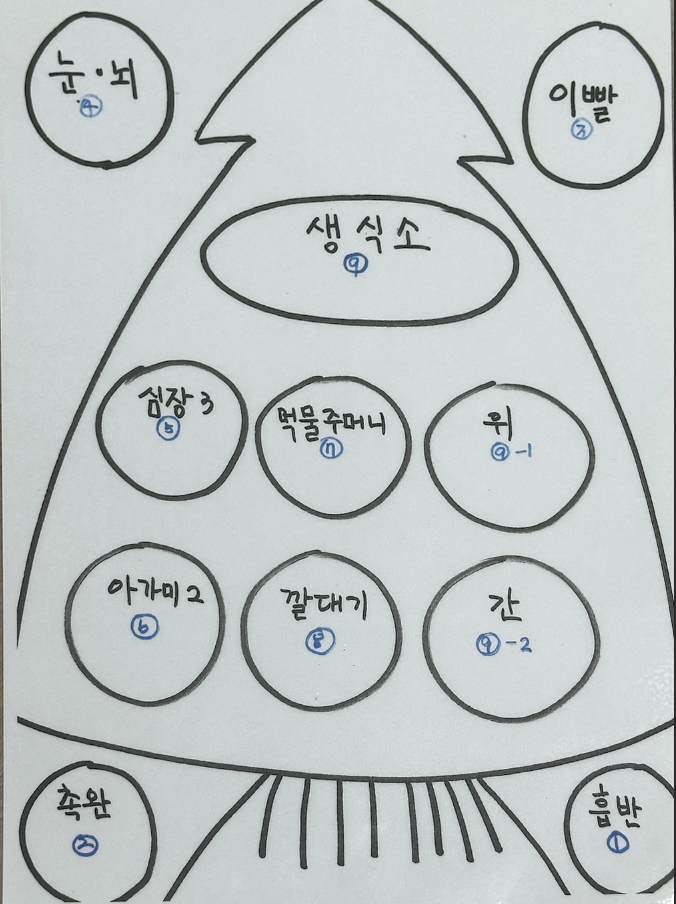 눈·뇌
④
이빨
③
생식소
⑨
심장 3
⑤
먹물주머니
⑦
위
⑨-1
아가미 2
⑥
깔대기
⑧
간
⑨-2
촉완
②
흡반
①